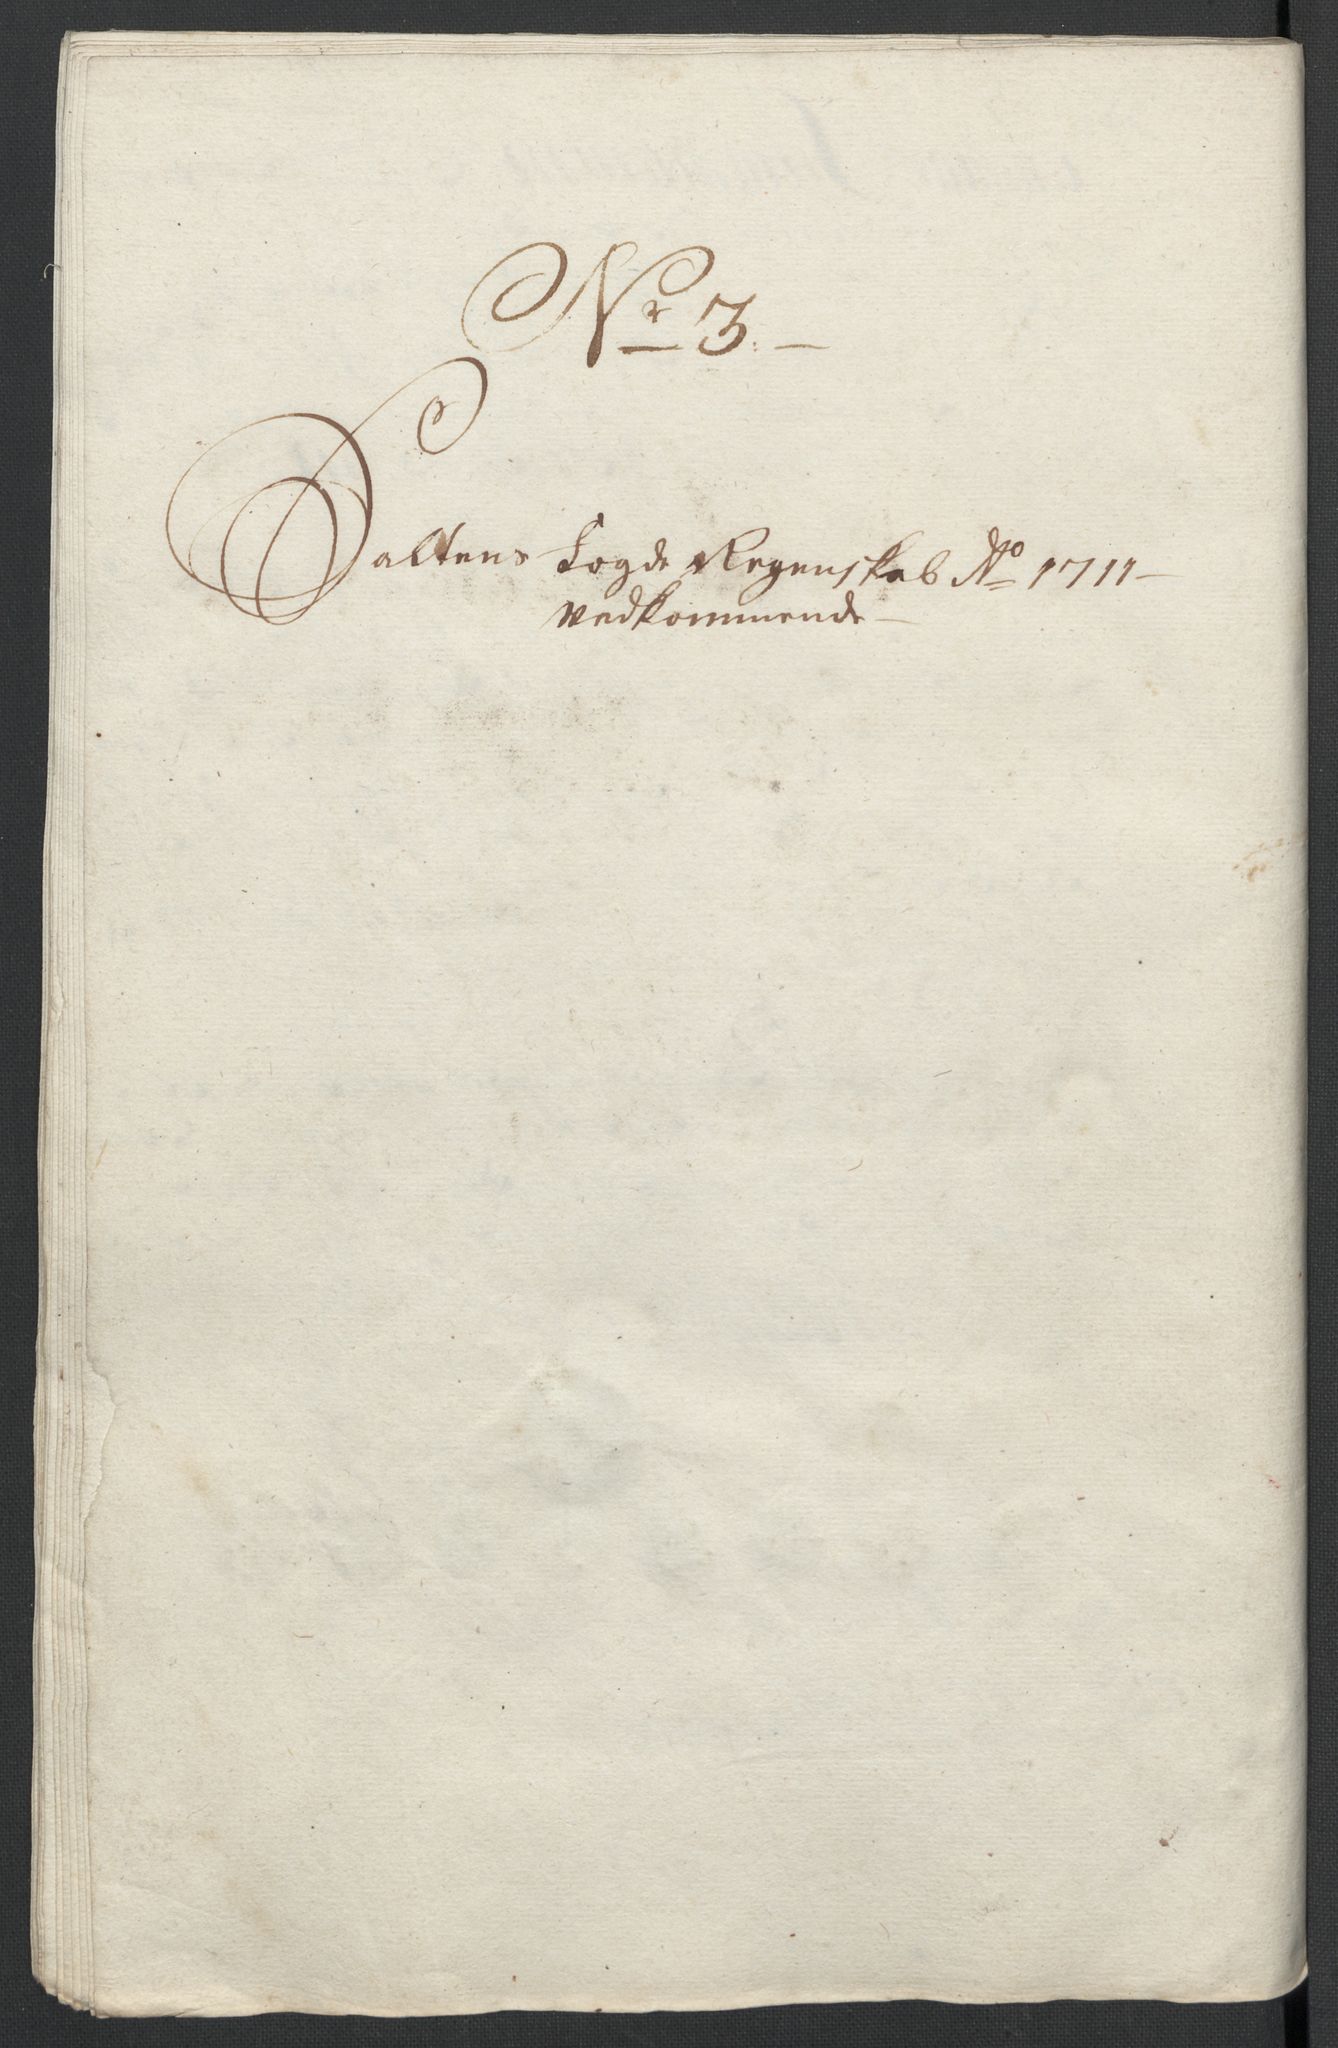 Nr 3.
Saltens Fogde Regenskab No 1711
vedkommende